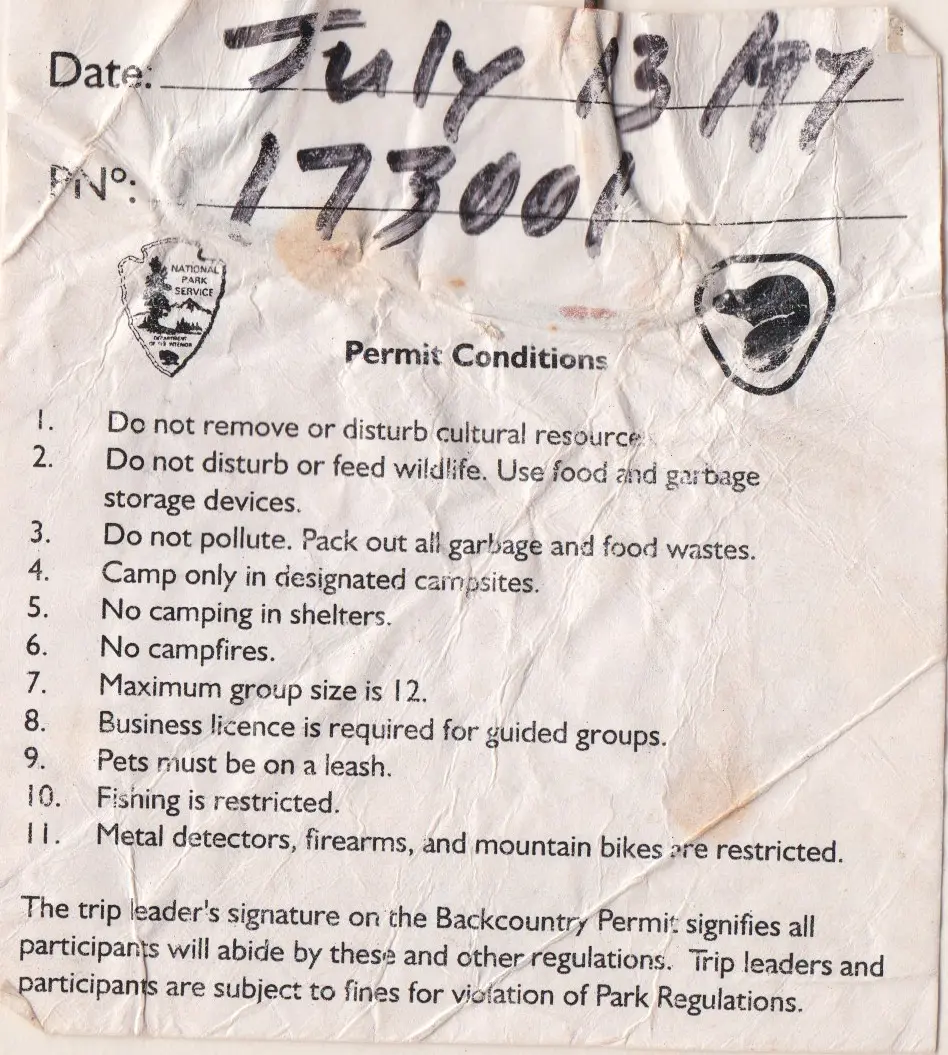 Date: July 13
PNº: 173001
NATIONAL
PARK
SERVICE
DEPARTMENT
OF THE INTERIOR
Permit Conditions
1. Do not remove or disturb cultural resources.
2. Do not disturb or feed wildlife. Use food and garbage
storage devices.
3. Do not pollute. Pack out all garbage and food wastes.
4. Camp only in designated campsites.
5. No camping in shelters.
6. No campfires.
7. Maximum group size is 12.
8. Business licence is required for guided groups.
9. Pets must be on a leash.
10. Fishing is restricted.
11. Metal detectors, firearms, and mountain bikes are restricted.
The trip leader's signature on the Backcountry Permit signifies all
participants will abide by these and other regulations. Trip leaders and
participants are subject to fines for violation of Park Regulations.